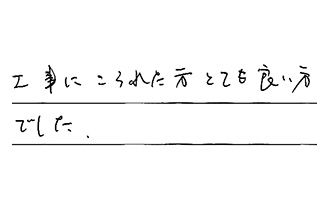 工事にこられた方とても良い方
でした.